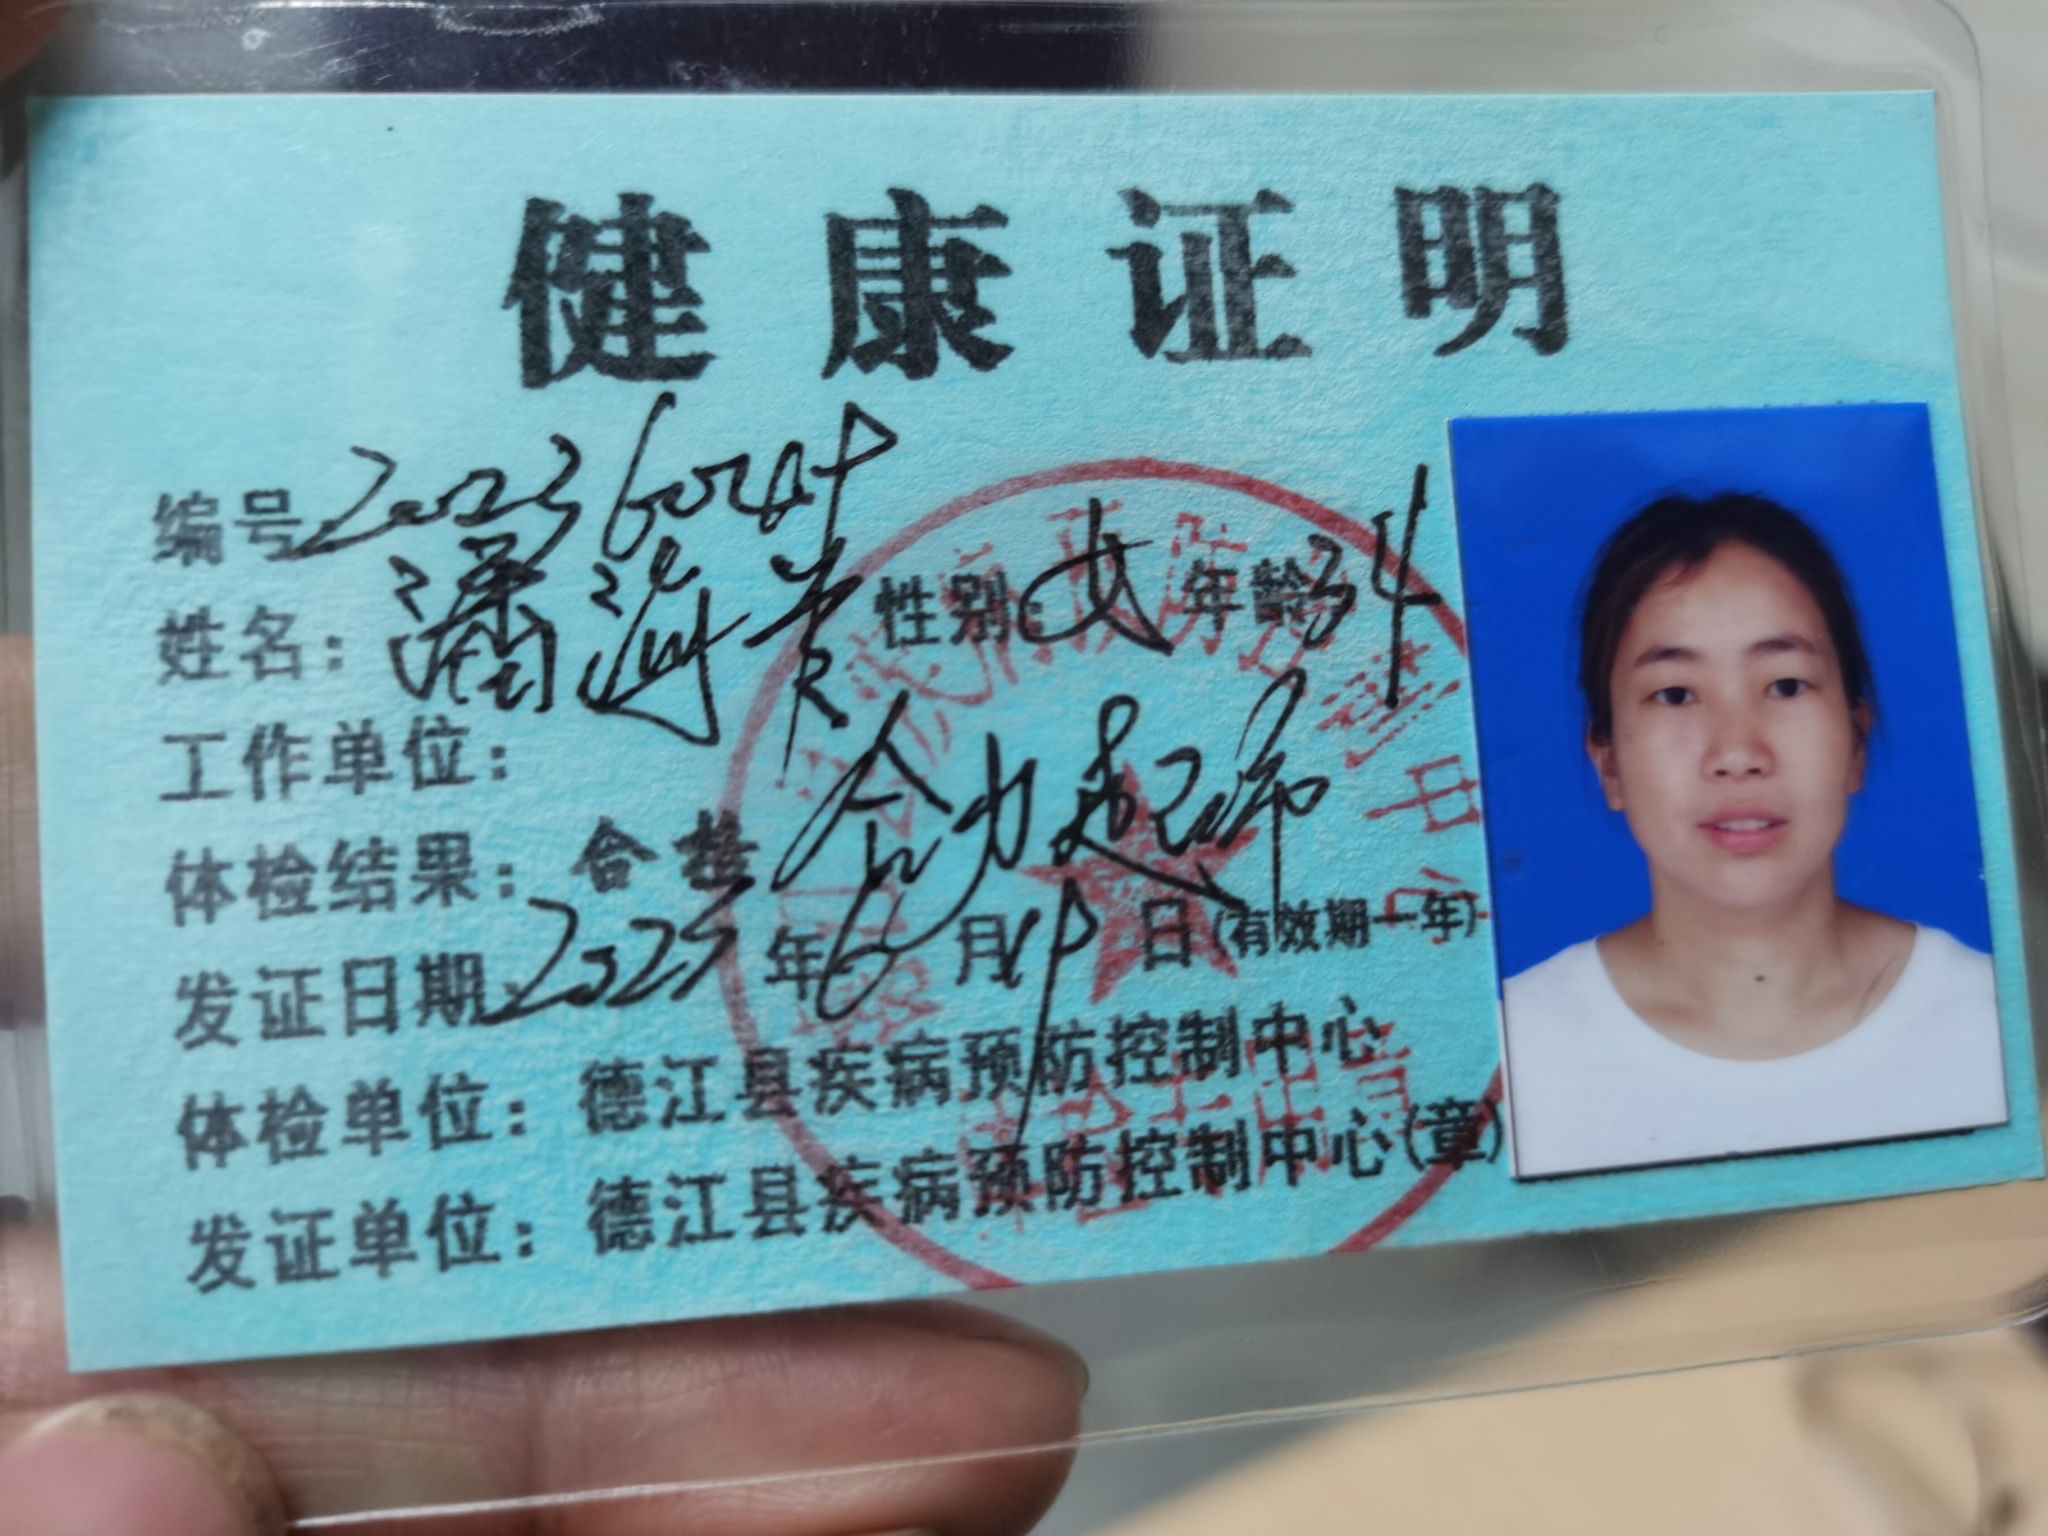 健康证明
编号
姓名：潘 性别：女 年龄34
工作单位：合力超市
体检结果：合格
发证日期：2025年6月19日(有效期一年)
体检单位：德江县疾病预防控制中心
发证单位：德江县疾病预防控制中心(章)